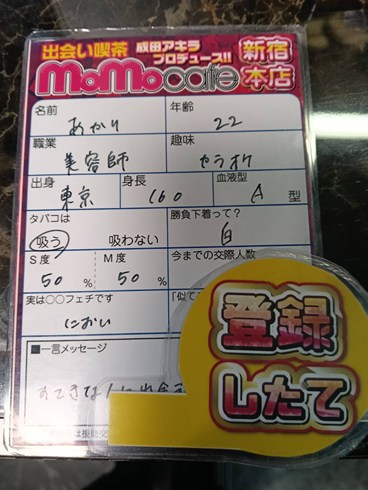 出会い喫茶 成田アキラ プロデュース!! 新宿本店
MoMocafe
名前 年齢
あかり 22
職業 趣味
美容師 カラオケ
出身 身長 血液型
東京 160 A型
タバコは 勝負下着って?
吸う 吸わない 白
S度 M度 今までの交際人数
50% 50%
実は○○フェチです 「似て
におい
登録
したて
■一言メッセージ
すてきな人に出会